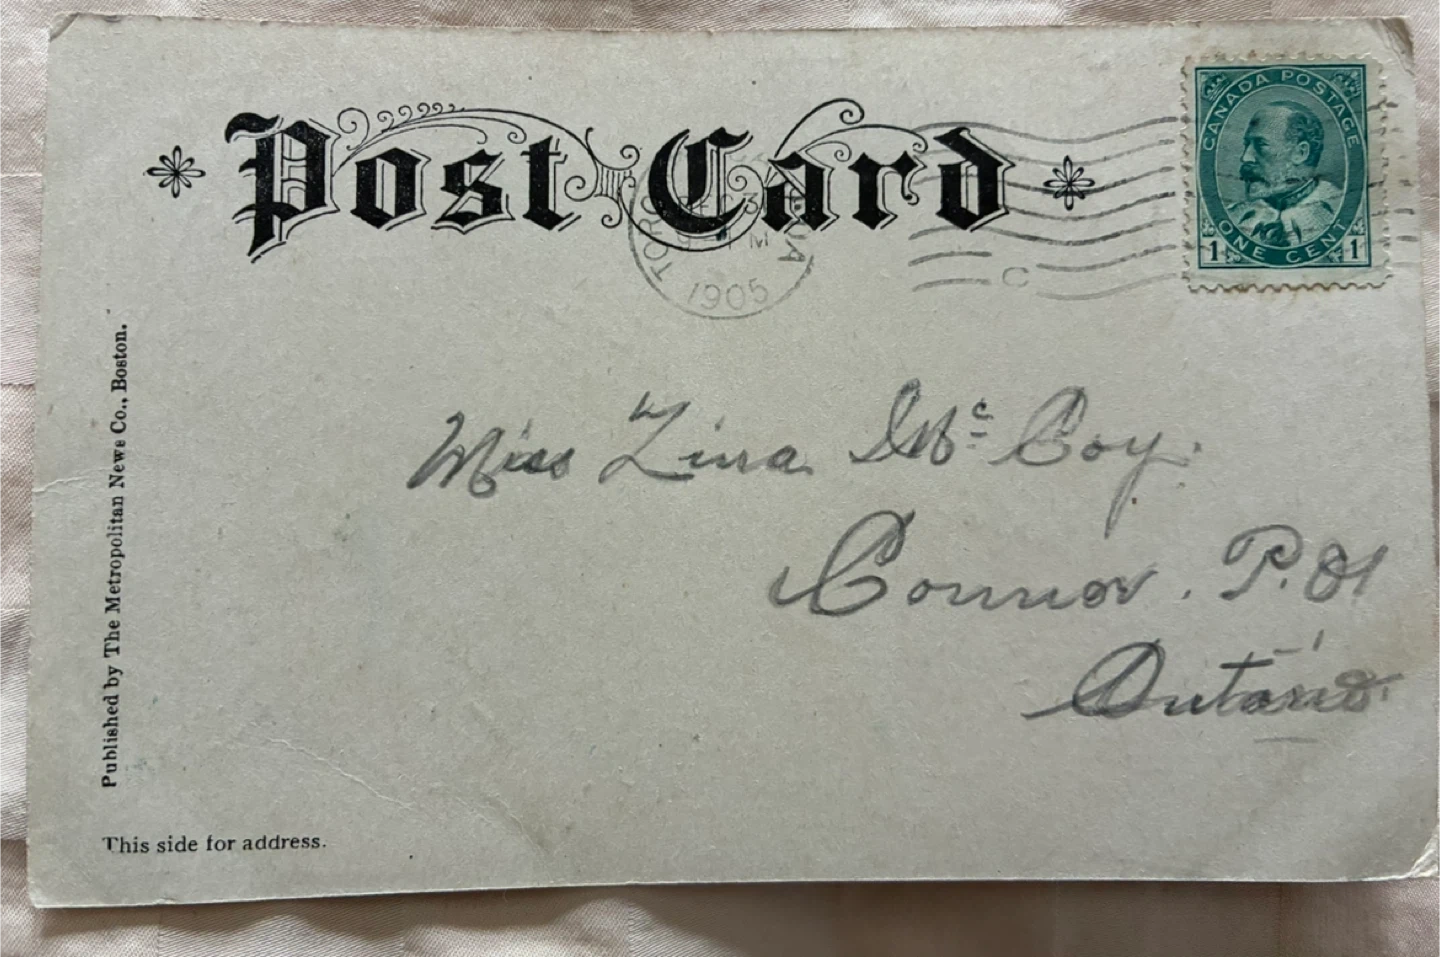 Post Card
CANADA POSTAGE
1 ONE CENT 1
1905
C
Miss Lina Mc Coy.
Connor. P.O
Ontario.
Published by The Metropolitan News Co., Boston.
This side for address.